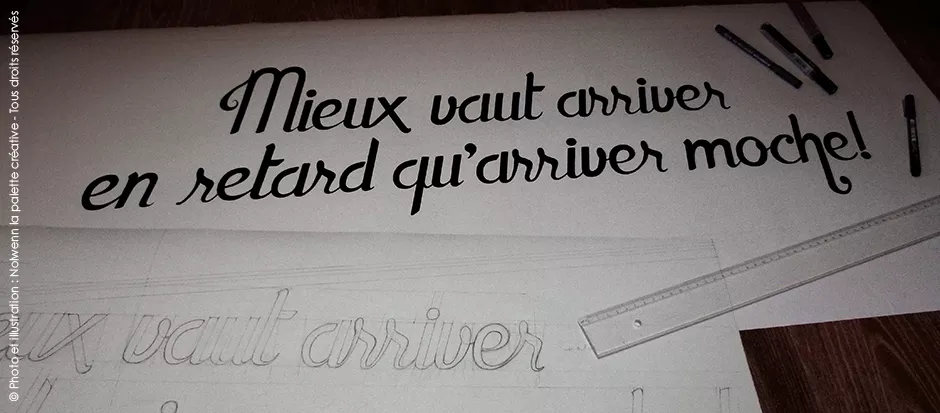 Mieux vaut arriver
en retard qu'arriver moche!
ux vaut arriver
© Photo et illustration : Nolwenn la palette créative - Tous droits réservés